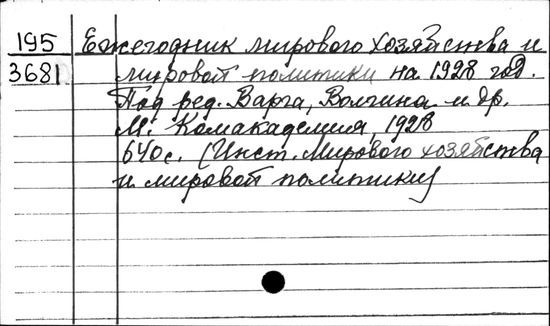 195 Ежегодник мирового хозяйства и
3681 мировой политики на 1928 год.
Под ред. Варга, Волгина и др.
М. Комакадемия, 1928
640с. (Инст. Мирового хозяйства
и мировой политики)